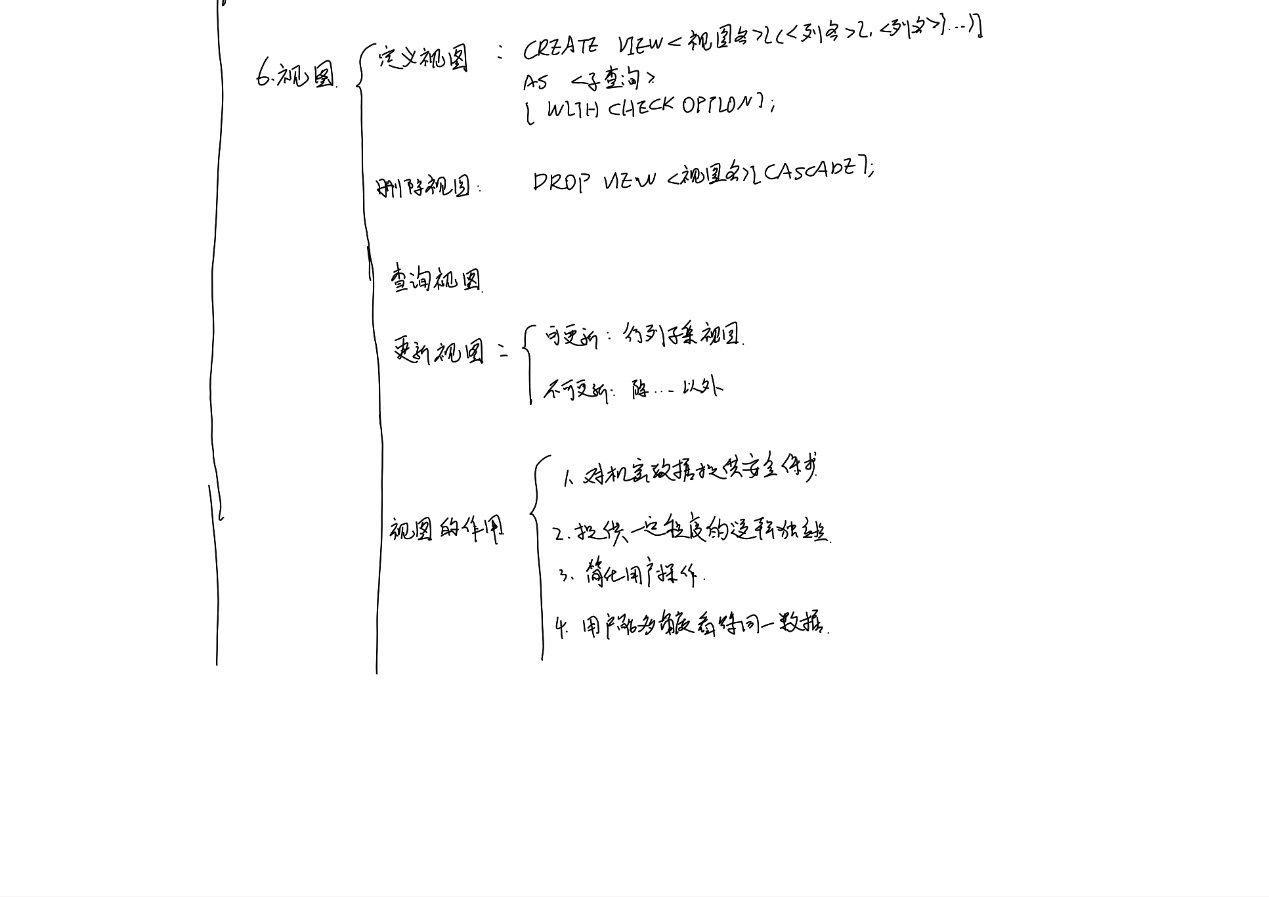 6.视图
定义视图 : CREATE VIEW <视图名>[(<列名>[,<列名>]...)]
AS <子查询>
[WITH CHECK OPTION];
删除视图: DROP VIEW <视图名>[CASCADE];
查询视图
更新视图:
可更新: 行列子集视图
不可更新: 除...以外
视图的作用
1. 对机密数据提供安全保护
2. 提供一定程度的逻辑独立
3. 简化用户操作.
4. 用户能多角度看待同一数据.